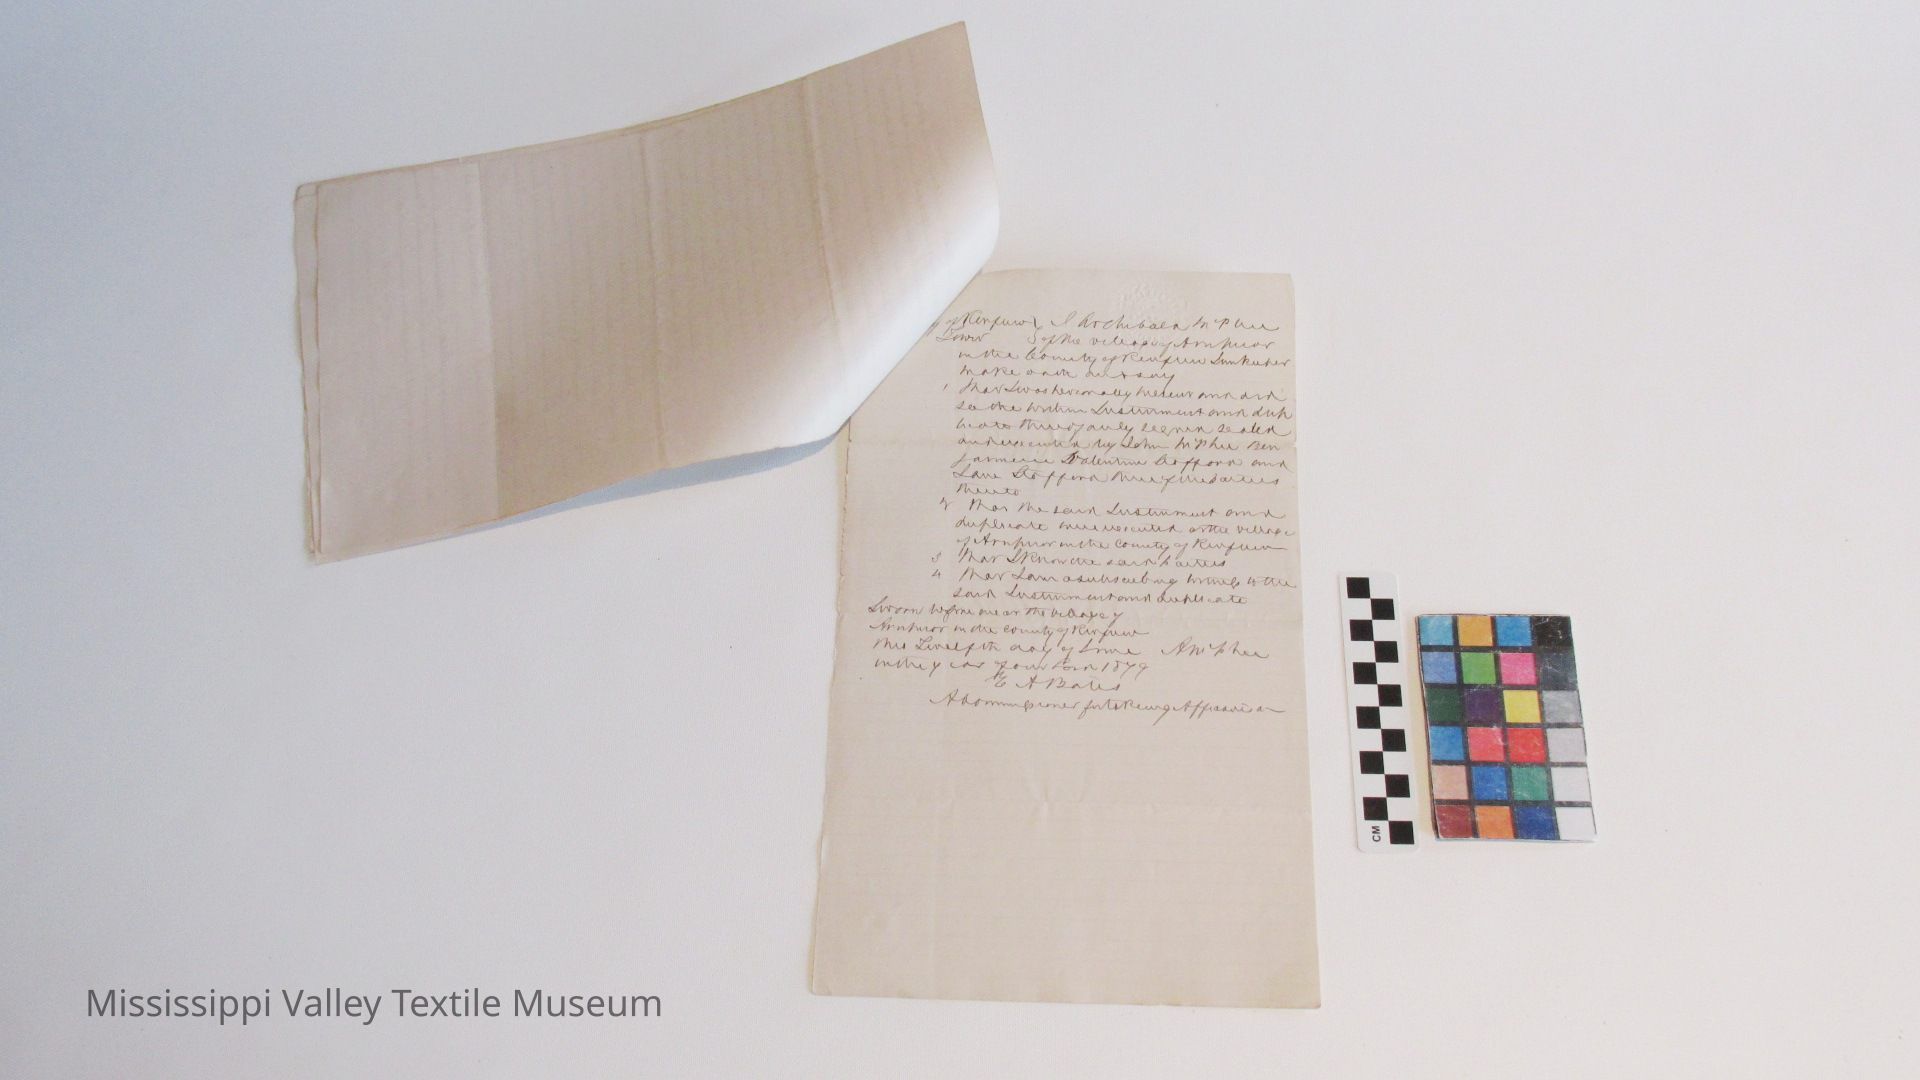 of Renfrew } I Archibald McPhee
To Wit } of the village of Arnprior
in the County of Renfrew Innkeeper
make oath and say
1 That I was personally present and did
see the within Instrument and dup
licate thereof duly signed sealed
and executed by John McPhee Ben
Valentine Stafford and
Jane Stafford three of the parties
thereto
2 That the said Instrument and
duplicate were executed at the village
of Arnprior in the County of Renfrew
3 That I know the said parties
4 That I am a subscribing witness to the
said Instrument and duplicate
Sworn before me at the village of
Arnprior in the county of Renfrew
this Twelfth day of June A McPhee
in the year of our Lord 1879
A Bates
A Commissioner for taking Affidavits
CM
Mississippi Valley Textile Museum